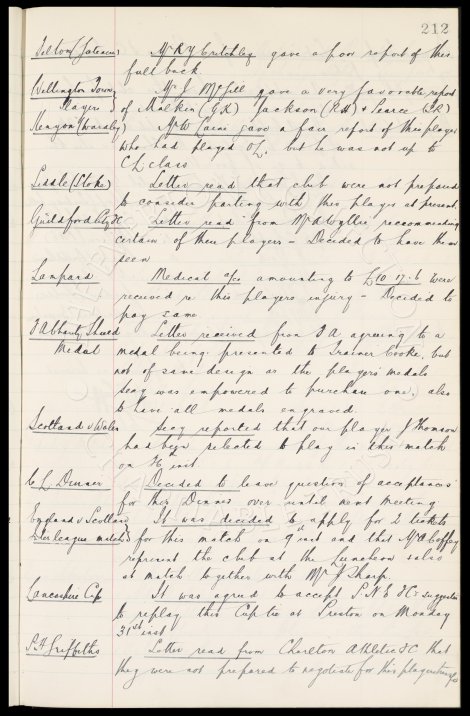 212
Felton (Gateshead) Mr R Y Critchley gave a poor report of this
full back.
Wellington Town Mr J McGill gave a very favourable report
Players of Malkin (GK) Jackson (RH) & Pearce (IR)
Kenyon (Wardley) Mr W Caine gave a fair report of this player
who had played OL. but he was not up to
CL class
Liddle (Stoke) Letter read that club were not prepared
to consider parting with this player at present
Guildford City FC Letter read from Mr A Wyllie recommending
certain of their players – Decided to have them
seen
Lampard Medical a/cs amounting to £10 17. 6 were
received re this players injury – Decided to
pay same.
FA Charity Shield Letter received from FA agreeing to a
Medal medal being presented to Trainer Cooke, but
not of same design as the players' medals
Secy was empowered to purchase one, also
to have all medals engraved.
Scotland v Wales Secy reported that our player J Thomson
had been selected to play in this match
on inst
CL Dinner Decided to leave question of acceptances
for this Dinner over until next meeting
England v Scotland It was decided to apply for 2 tickets
Inter league match for this match on 9th inst and that Mr A Coffey
represent the club at the Luncheon & also
at match together with Mr J Sharp.
Lancashire Cup It was agreed to accept P.N.E FC's suggestion
to replay this Cup tie at Preston on Monday
31st inst
P.H. Griffiths Letter read from Charlton Athletic FC that
they were not prepared to negotiate for this players transfer